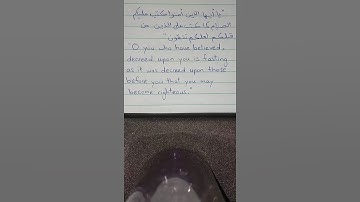 "يا أيها الذين آمنوا كتب عليكم
الصيام كما كتب على الذين من
قبلكم لعلكم تتقون"
"O you who have believed,
decreed upon you is fasting
as it was decreed upon those
before you that you may
become righteous."